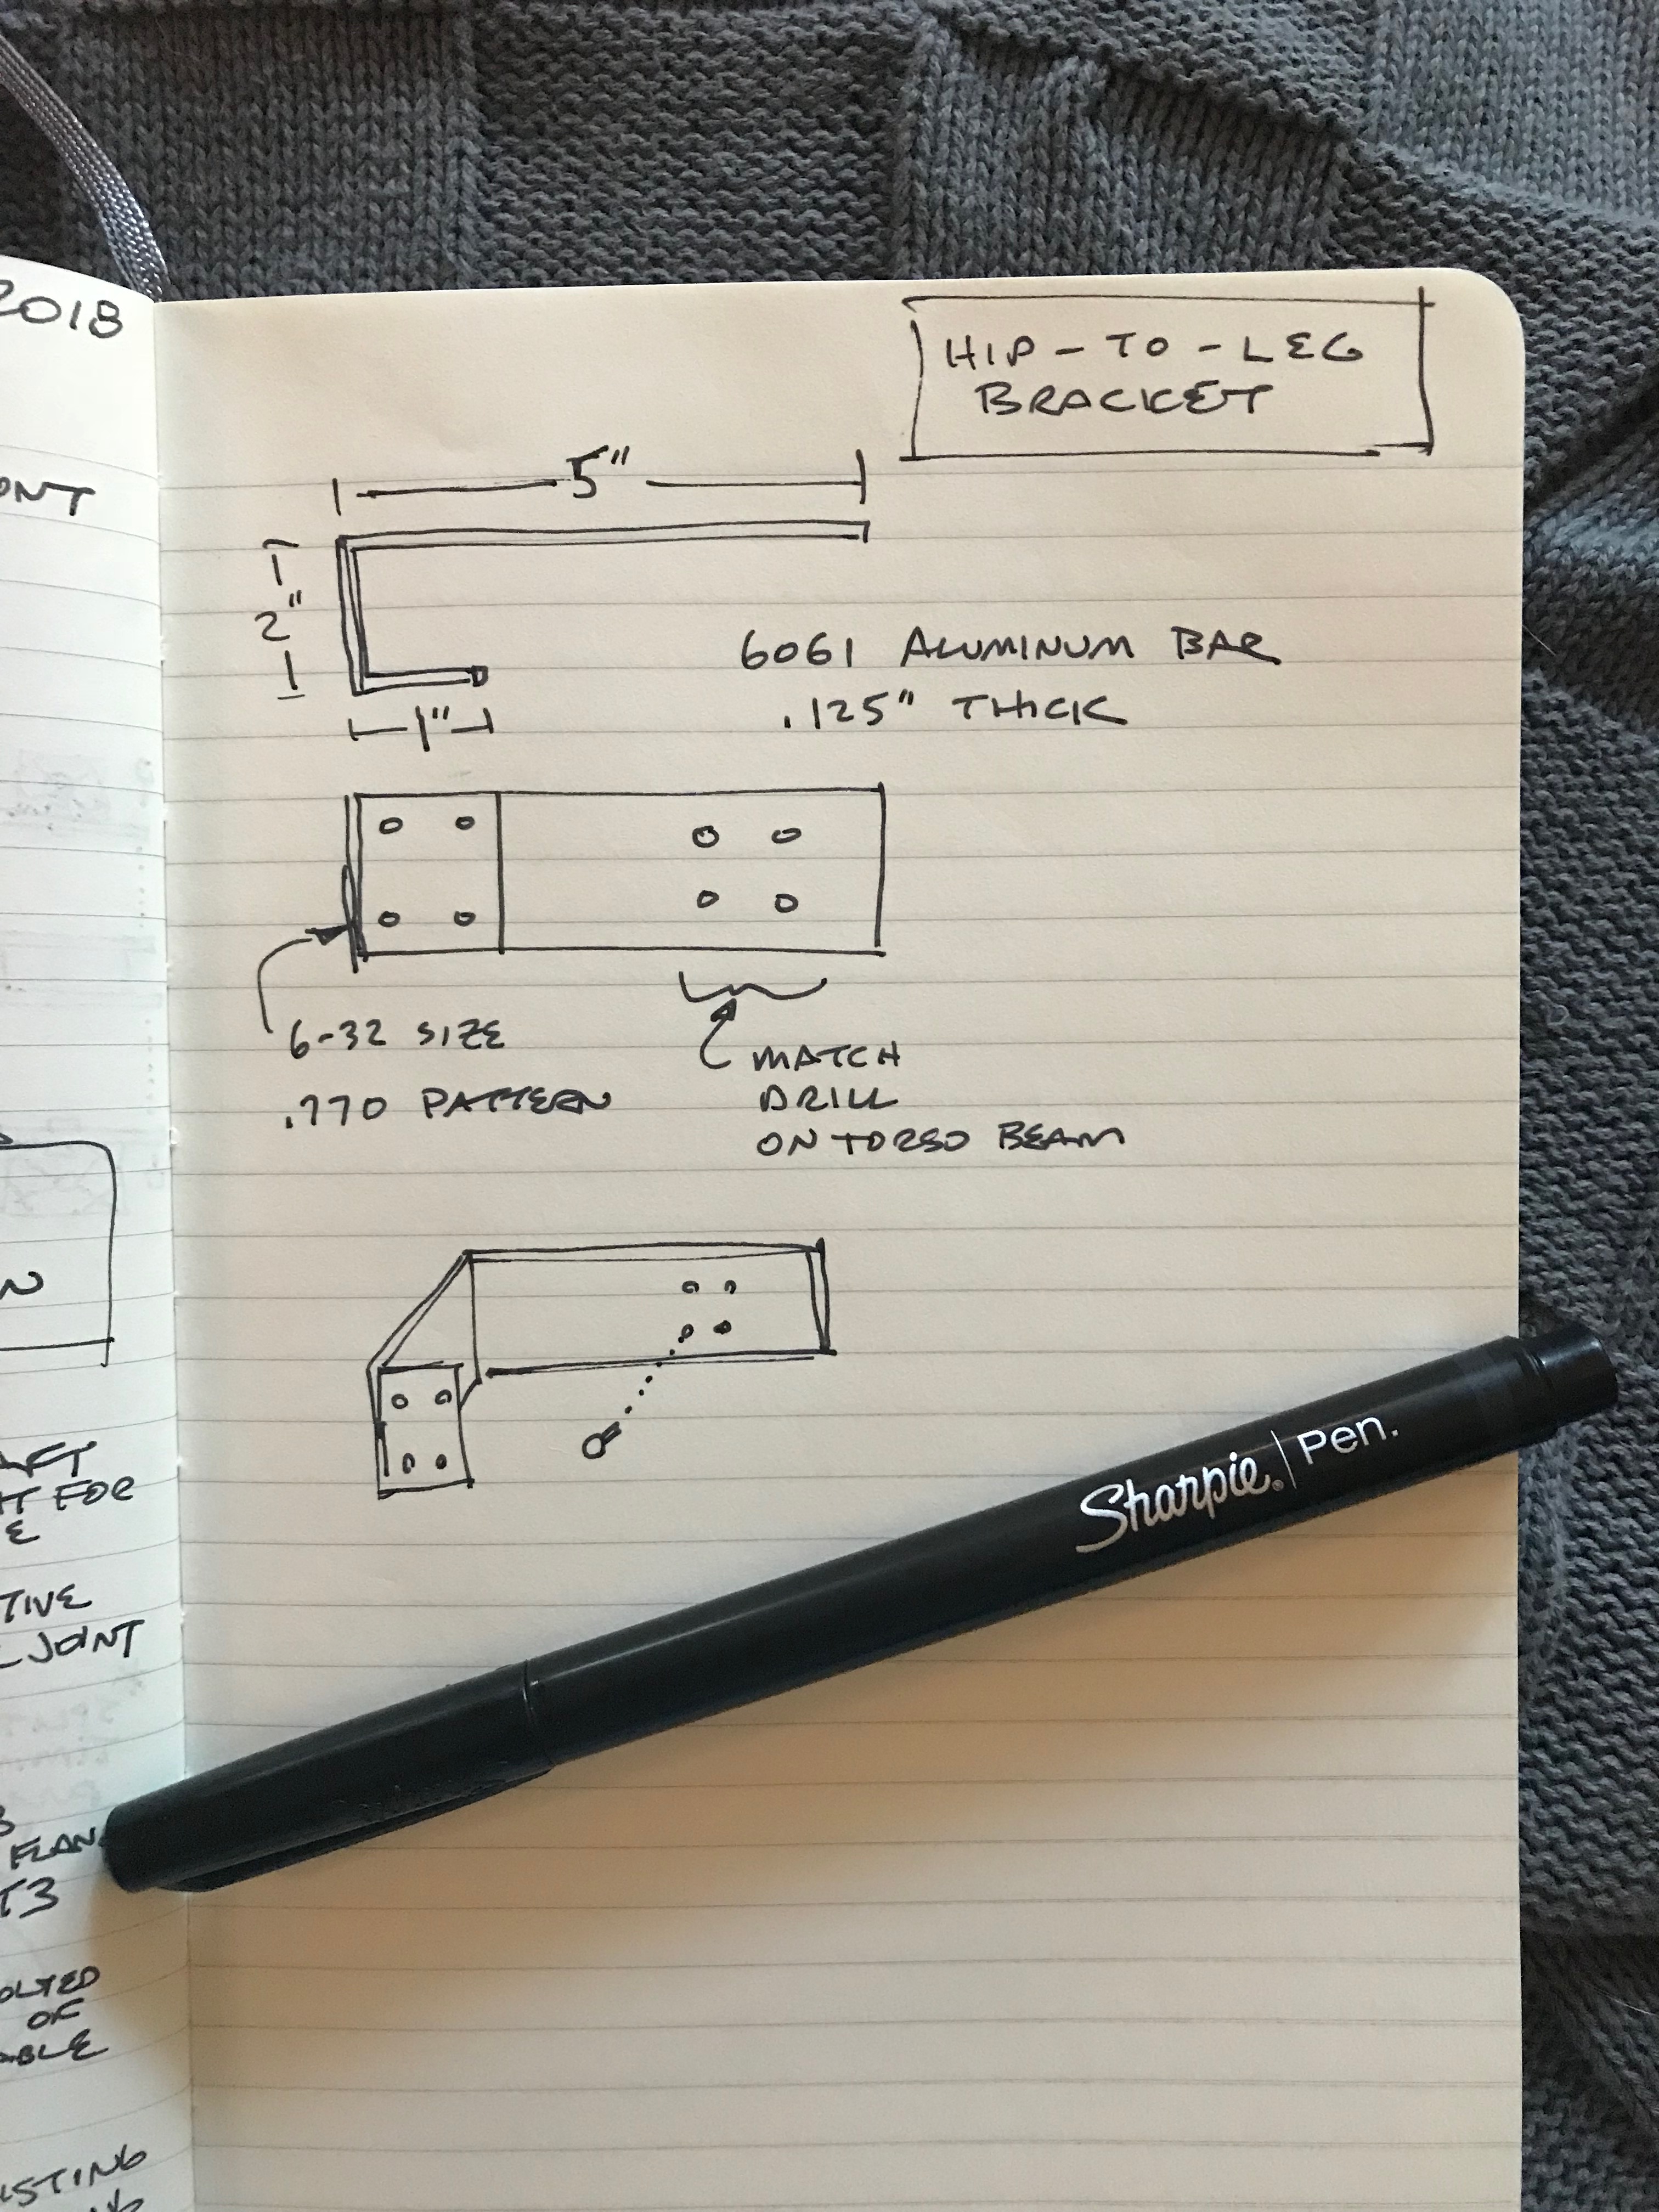 2018
HIP-TO-LEG
BRACKET
5"
2"
1"
6061 ALUMINUM BAR
.125" THICK
6-32 SIZE
.770 PATTERN
MATCH
DRILL
ON TORSO BEAM
Sharpie. Pen.
JOINT
FOR
T3
OF